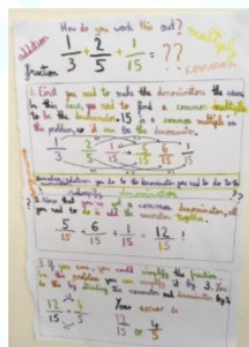 How do you work this out?
addition
multiply
1/3 + 2/5 + 1/15 = ??
fraction
1. First you need to make the denominators the same
In this case, you need to find a common multiple
to be the denominator. 15 is a common multiple in
this problem, so it can be the denominator.
1/3 2/5 1/15 5/15 6/15 1/15
whatever you do to the denominator you need to do to the
denominator
2. Now that you've got a common denominator, all
you need to do is add the numerators together.
5/15 + 6/15 + 1/15 = 12/15 !
3. If you can, you could simplify the fraction.
In this problem you can simplify it by 3. You
do this by dividing the numerator and denominator by 3
12/15 = 4/5
Your answer is
12/15 or 4/5